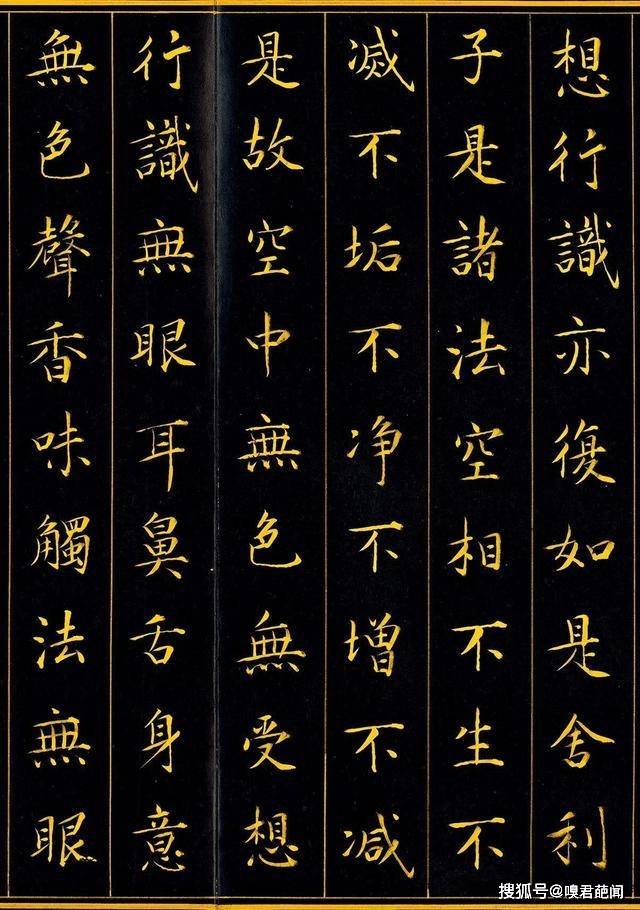 想行識亦復如是舍利
子是諸法空相不生不
滅不垢不净不增不減
是故空中無色無受想
行識無眼耳鼻舌身意
無色聲香味觸法無眼
搜狐号@嗅君葩闻